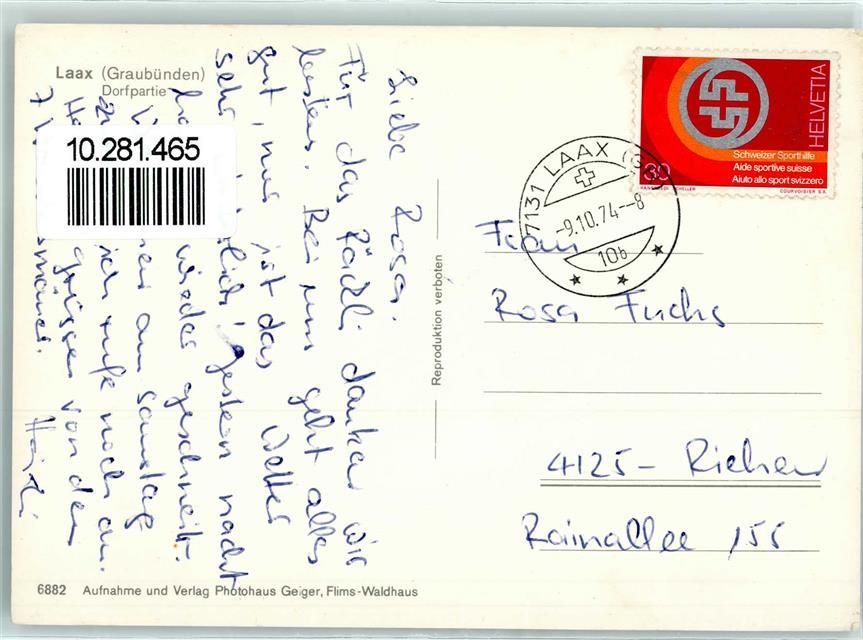 Laax (Graubünden)
Dorfpartie
10.281.465
Liebe Rosa.
Für das Päckli danken wir
bestens. Bei uns geht alles
gut, nur ist das Wetter
sehr gestern nacht
wieder geschneit.
am Samstag
ich rufe noch an.
grüssen von den
Heidi
6882 Aufnahme und Verlag Photohaus Geiger, Flims-Waldhaus
Reproduktion verboten
HELVETIA
Schweizer Sporthilfe
Aide sportive suisse
Aiuto allo sport svizzero
30
COURVOISIER S.A.
7131 LAAX (GR)
-9.10.74--8
10b
Frau
Rosa Fuchs
4125- Riehen
Rainallee 155